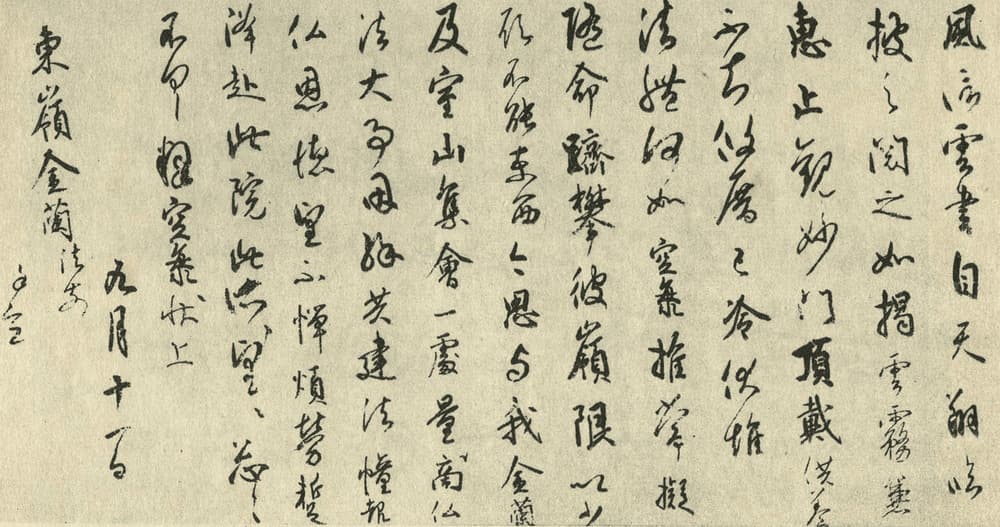 風信雲書自天翔臨
披之閱之如揭雲霧兼
惠止觀妙門頂戴供養
不知攸厝已冷伏惟
法體何如空海推常擬
隨命躋攀彼嶺限以少
願不能東西今思与我金蘭
及室山集會一處量商仏
法大事因緣共建法幢報
仏恩德望不憚煩勞蹔
降赴此院此所望々々忩々
不具釋空海狀上
九月十一日
東嶺金蘭法前
謹空